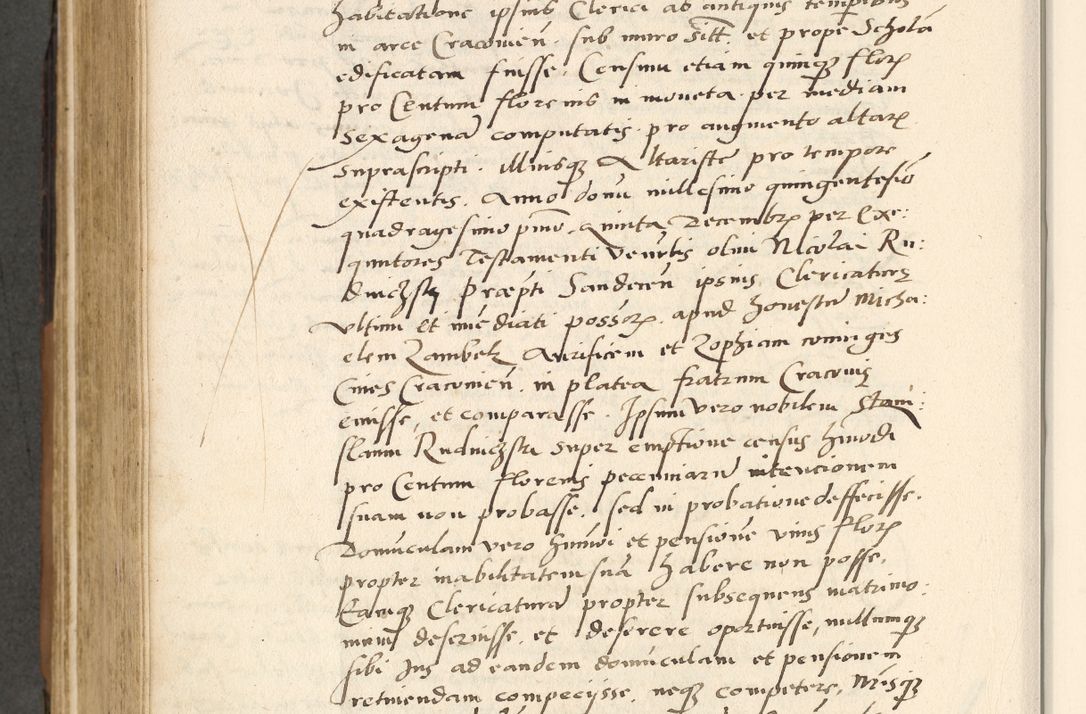 habitatione ipsius Clerici ab antiquis temporibus
in arce Cracovien. sub muro Sitt. et prope Scholā
edificatam fuisse. Censum etiam quinq̧ flor̄
pro Centum florenis in moneta per mediam
Sexagenā computatis. pro augmento altar̄
suprascripti. illiusq̧ Altariste pro tempore
existentis. Anno domi millesimo quingentesiō
quadragesimo pmō. Quinta Decembr̄ per Exe:
quutores Testamenti Venerlis olim Nicolai Ru:
dnichsky Præpti Sandecen ipsius Clericatury
ultimi et imēdiati possor̄. apud honestū Micha:
elem Zambelz Aurificem et Zophiam coniuges
Cives Cracovien. in platea fratrum Cracovię
emisse, et comparasse. Ipsum vero nobilem Stani:
slaum Rudnichski super emptione census hmōdi
pro Centum florenis pecuniarū intentionem
suam non probasse. sed in probatione deffecisse.
Domūculam vero hmōi et pensionē unius flor̄
propter inabilitatem suā habere non posse.
Eamq̧ Clericaturā propter subsequens matrimo:
nium deseruisse. et deserere oportuisse, nullumq̧
sibi Jus ad eandem domūculam et pensionem
retinendam compeciisse. neq̧ competere,